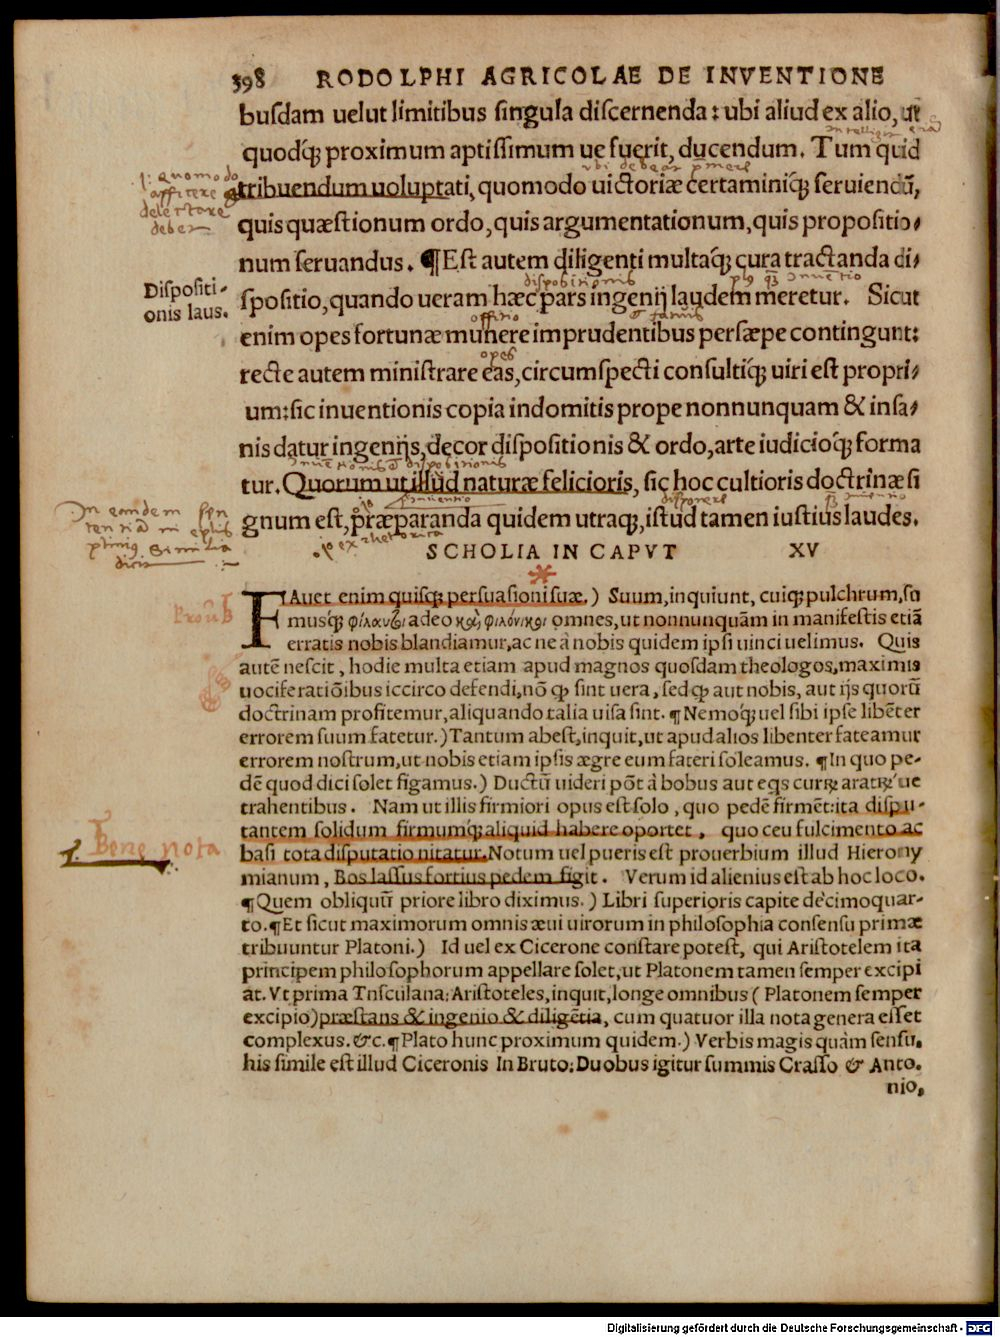 398 RODOLPHI AGRICOLAE DE INVENTIONE
busdam uelut limitibus singula discernenda: ubi aliud ex alio, ut
quodq́; proximum aptissimum ue fuerit, ducendum. Tum quid
tribuendum uoluptati, quomodo uictoriæ certaminiq́; seruiendū,
quis quæstionum ordo, quis argumentationum, quis propositio-
num seruandus. ¶Est autem diligenti multaq́; cura tractanda di-
Dispositi-
onis laus.
spositio, quando ueram hæc pars ingenij laudem meretur. Sicut
enim opes fortunæ munere imprudentibus persæpe contingunt:
recte autem ministrare eas, circumspecti consultiq́; uiri est propri-
um: sic inuentionis copia indomitis prope nonnunquam & insa-
nis datur ingenijs, decor dispositionis & ordo, arte iudicioq́; forma
tur. Quorum ut illud naturæ felicioris, sic hoc cultioris doctrinæ si
gnum est, præparanda quidem utraq;, istud tamen iustius laudes.
opes
dispositionis
SCHOLIA IN CAPVT XV
FAuet enim quisq; persuasioni suæ.) Suum, inquiunt, cuiq; pulchrum, su
musq́; φίλαυτοι adeo καὶ φιλόνικοι omnes, ut nonnunquam in manifestis etiā
erratis nobis blandiamur, ac ne à nobis quidem ipsi uinci uelimus. Quis
autē nescit, hodie multa etiam apud magnos quosdam theologos, maximis
uociferatiōibus iccirco defendi, nō ꝙ sint uera, sed ꝙ aut nobis, aut ijs quorū
doctrinam profitemur, aliquando talia uisa sint. ¶Nemoq́; uel sibi ipse libēter
errorem suum fatetur.) Tantum abest, inquit, ut apud alios libenter fateamur
errorem nostrum, ut nobis etiam ipsis ægre eum fateri soleamus. ¶In quo pe-
dē quod dici solet figamus.) Ductū uideri pōt à bobus aut eqs currꝝ aratrꝝ'ue
trahentibus. Nam ut illis firmiori opus est solo, quo pedē firmēt: ita dispu-
tantem solidum firmumq́; aliquid habere oportet, quo ceu fulcimento ac
Bene nota
basi tota disputatio nitatur. Notum uel pueris est prouerbium illud Hierony
mianum, Bos lassus fortius pedem figit. Verum id alienius est ab hoc loco.
¶Quem obliquum priore libro diximus.) Libri superioris capite decimoquar-
to. ¶Et sicut maximorum omnis æui uirorum in philosophia consensu primæ
tribuuntur Platoni.) Id uel ex Cicerone constare potest, qui Aristotelem ita
principem philosophorum appellare solet, ut Platonem tamen semper excipi
at. Vt prima Tusculana: Aristoteles, inquit, longe omnibus (Platonem semper
excipio) præstans & ingenio & diligētia, cum quatuor illa nota genera esset
complexus. &c. ¶Plato hunc proximum quidem.) Verbis magis quàm sensu,
his simile est illud Ciceronis In Bruto: Duobus igitur summis Crasso & Anto-
nio,
Digitalisierung gefördert durch die Deutsche Forschungsgemeinschaft - DFG